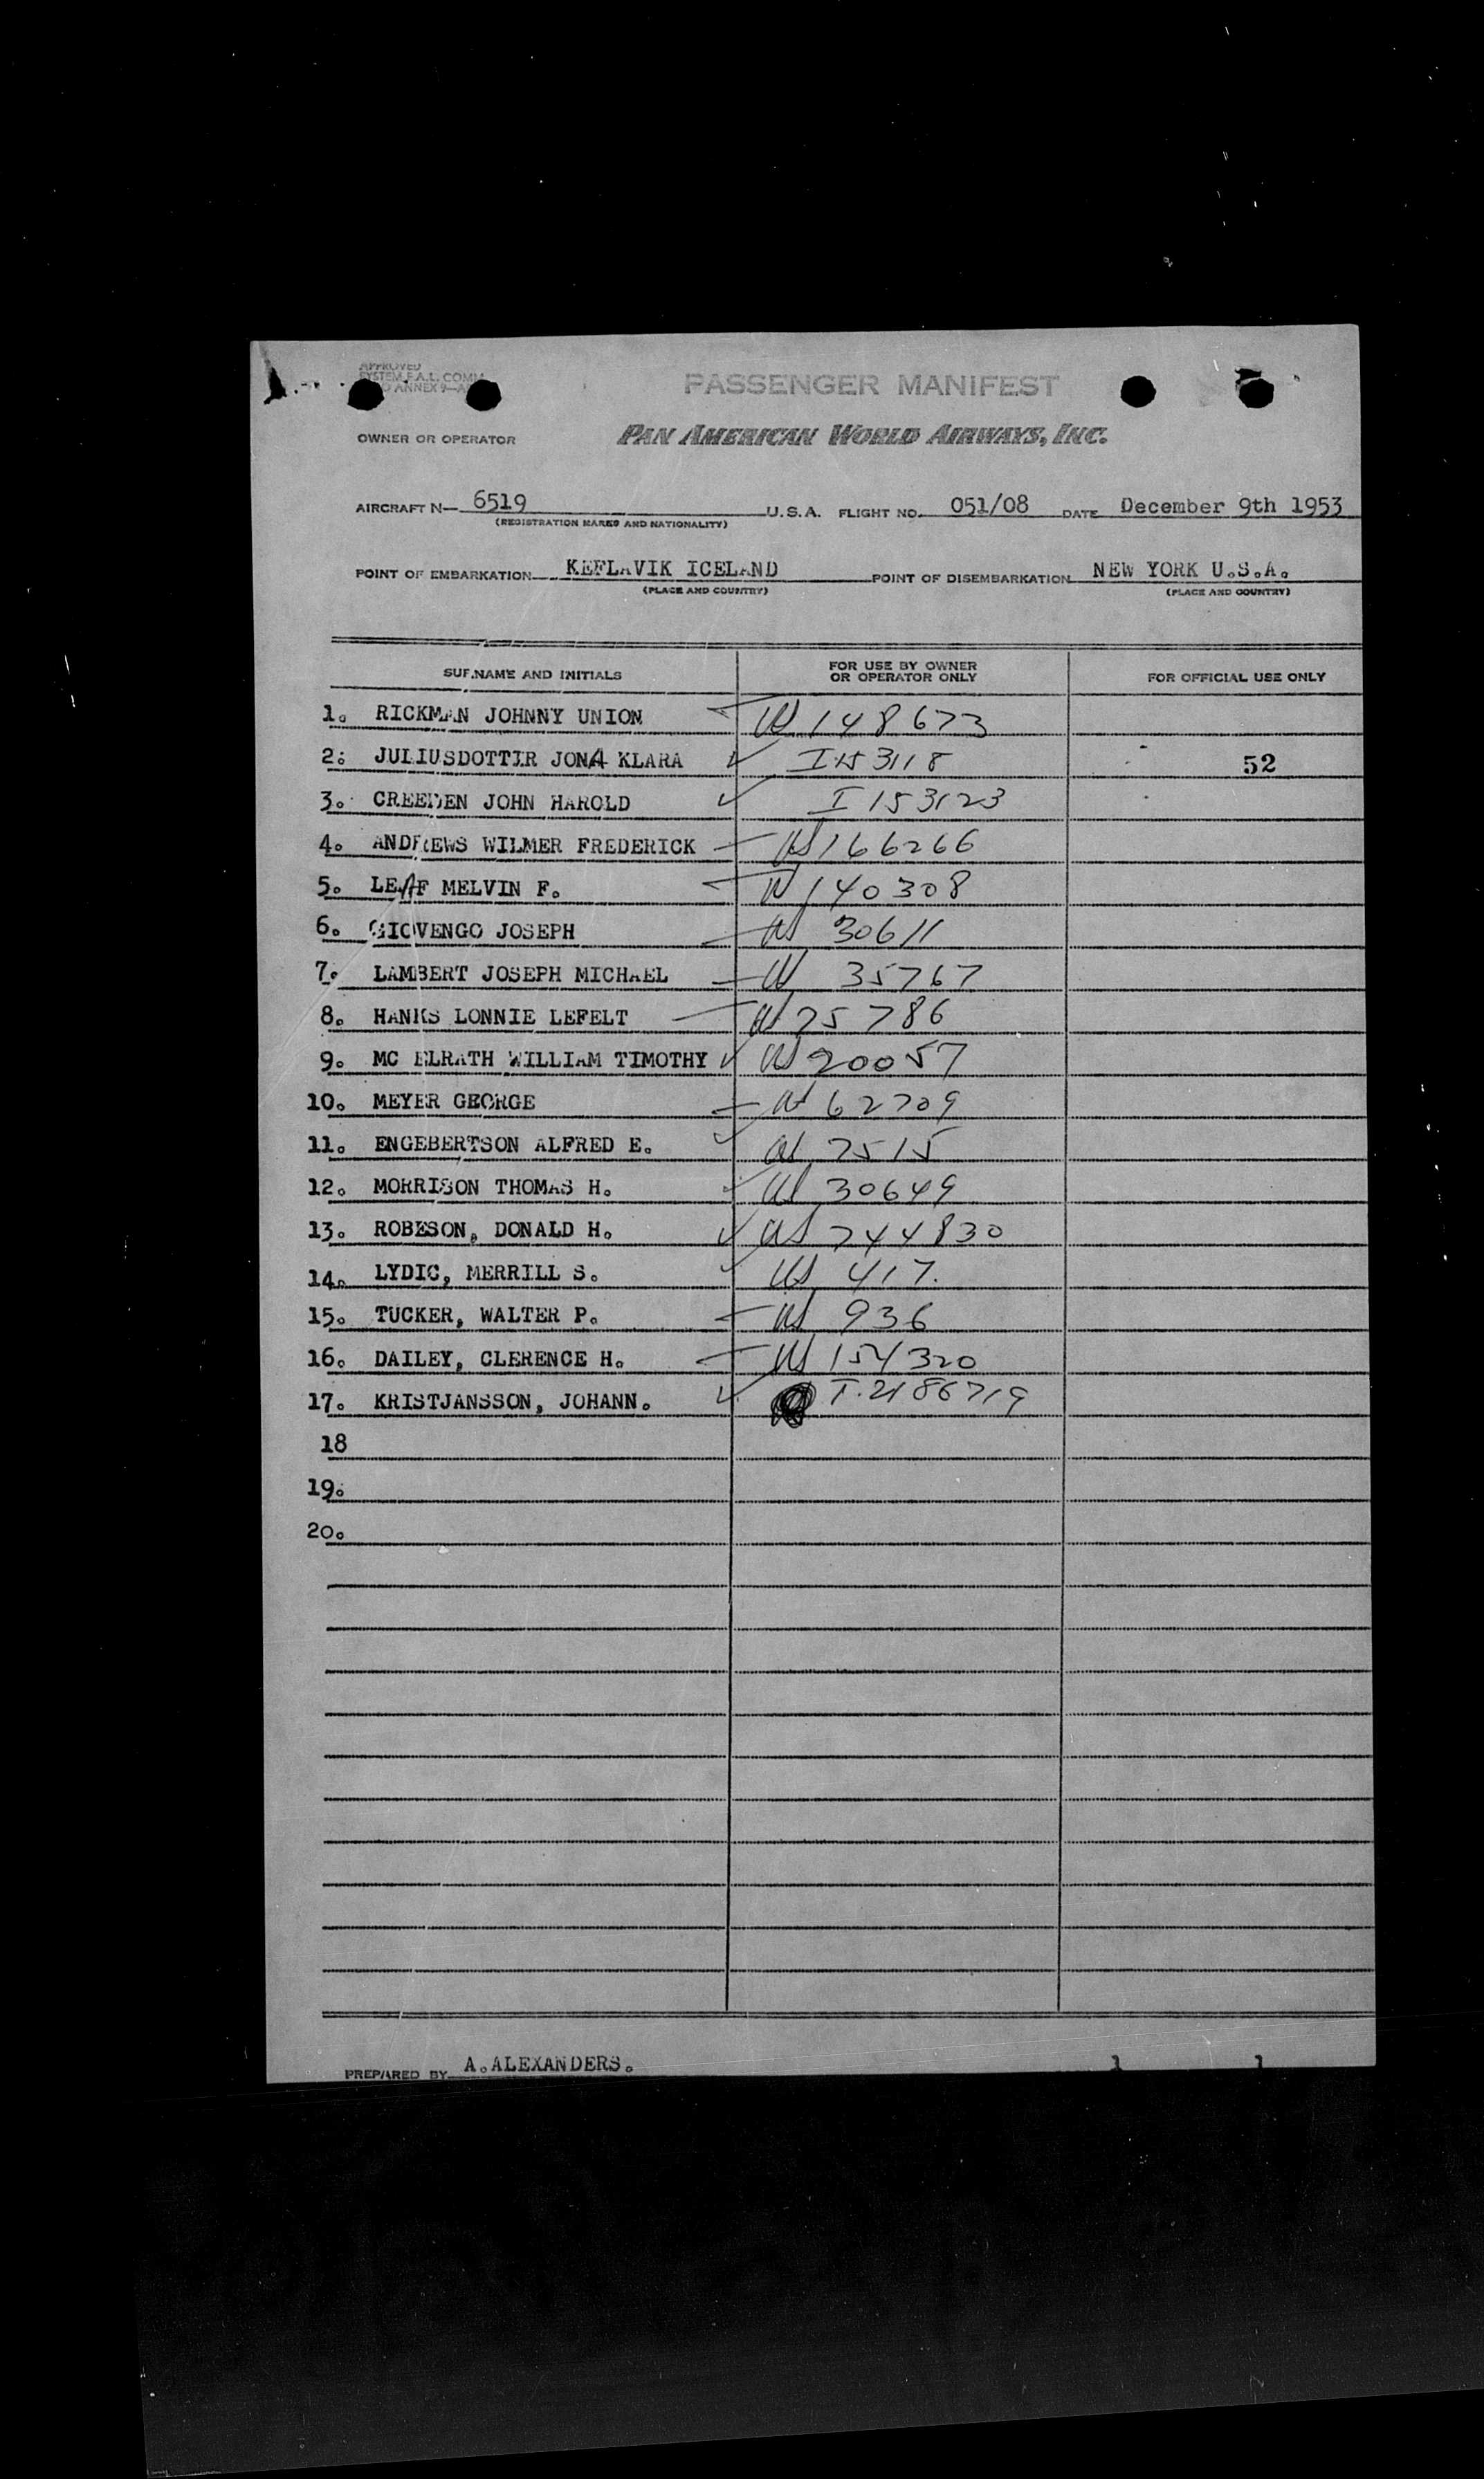 APPROVED
SYSTEM F.A.L. COMM.
ANNEX 9—A
PASSENGER MANIFEST
OWNER OR OPERATOR PAN AMERICAN WORLD AIRWAYS, INC.
AIRCRAFT N— 6519 U.S.A. FLIGHT NO. 051/08 DATE December 9th 1953
(REGISTRATION MARKS AND NATIONALITY)
POINT OF EMBARKATION KEFLAVIK ICELAND POINT OF DISEMBARKATION NEW YORK U.S.A.
(PLACE AND COUNTRY) (PLACE AND COUNTRY)
SURNAME AND INITIALS FOR USE BY OWNER OR OPERATOR ONLY FOR OFFICIAL USE ONLY
1. RICKMAN JOHNNY UNION US 148673
2. JULIUSDOTTIR JONA KLARA I 153118 52
3. CREEDEN JOHN HAROLD I 153123
4. ANDREWS WILMER FREDERICK US 166266
5. LEAF MELVIN F. US 140308
6. GIOVENGO JOSEPH US 30611
7. LAMBERT JOSEPH MICHAEL US 35767
8. HANKS LONNIE LEFELT US 75786
9. MC ELRATH WILLIAM TIMOTHY US 20057
10. MEYER GEORGE US 62709
11. ENGEBERTSON ALFRED E. US 7515
12. MORRISON THOMAS H. US 30649
13. ROBESON, DONALD H. US 744830
14. LYDIC, MERRILL S. US 417.
15. TUCKER, WALTER P. US 936
16. DAILEY, CLERENCE H. US 154320
17. KRISTJANSSON, JOHANN. I. 2186719
18
19.
20.
PREPARED BY A. ALEXANDERS. 1 1